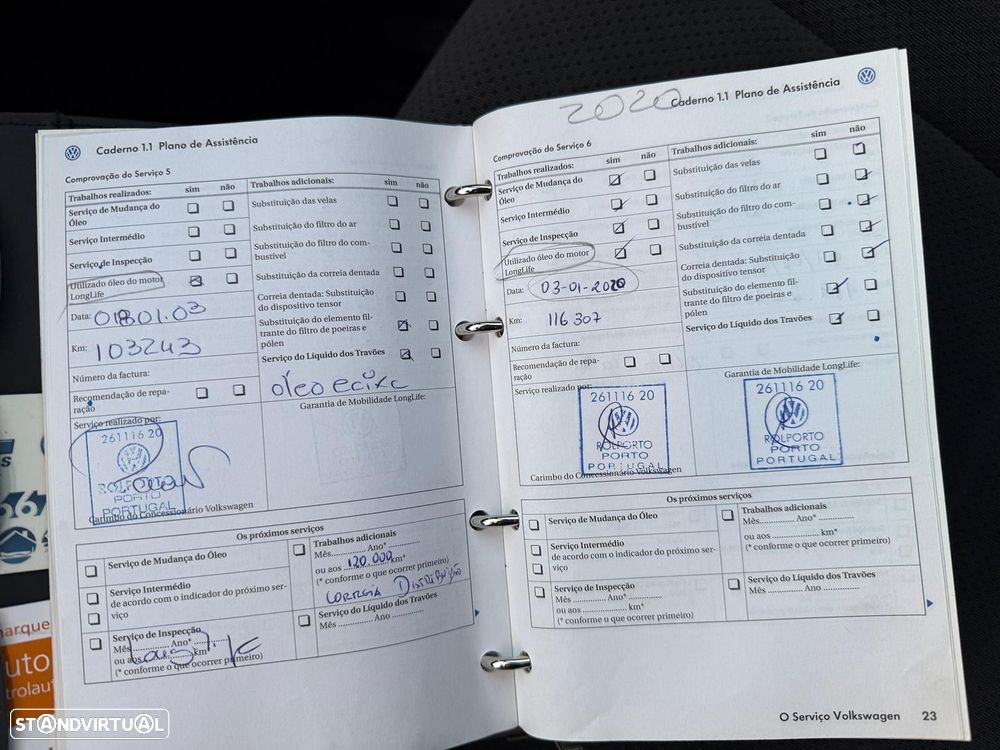 Caderno 1.1 Plano de Assistência
Comprovação do Serviço 5
Trabalhos realizados: sim não
Serviço de Mudança do
Óleo
Serviço Intermédio
Serviço de Inspecção
Utilizado óleo do motor
LongLife
Data:
Km: 103243
Número da factura:
Recomendação de repa-
ração
Serviço realizado por:
261116 20
ROLPORTO
PORTO
PORTUGAL
Carimbo do Concessionário Volkswagen
Trabalhos adicionais: sim não
Substituição das velas
Substituição do filtro do ar
Substituição do filtro do com-
bustível
Substituição da correia dentada
Correia dentada: Substituição
do dispositivo tensor
Substituição do elemento fil-
trante do filtro de poeiras e
pólen
Serviço do Líquido dos Travões
Garantia de Mobilidade LongLife:
Os próximos serviços
Serviço de Mudança do Óleo
Serviço Intermédio
de acordo com o indicador do próximo ser-
viço
Serviço de Inspecção
Mês ............... Ano* ...............
ou aos ............... km*
(* conforme o que ocorrer primeiro)
Trabalhos adicionais
Mês............... Ano* ...............
ou aos 120.000 km*
(* conforme o que ocorrer primeiro)
CORREIA DISTRIBUIÇÃO
Serviço do Líquido dos Travões
Mês ............... Ano ...............
2020
Caderno 1.1 Plano de Assistência
Comprovação do Serviço 6
Trabalhos realizados: sim não
Serviço de Mudança do
Óleo
Serviço Intermédio
Serviço de Inspecção
Utilizado óleo do motor
LongLife
Data: 03-01-2020
Km: 116 307
Número da factura:
Recomendação de repa-
ração
Serviço realizado por:
261116 20
ROLPORTO
PORTO
PORTUGAL
Carimbo do Concessionário Volkswagen
Trabalhos adicionais: sim não
Substituição das velas
Substituição do filtro do ar
Substituição do filtro do com-
bustível
Substituição da correia dentada
Correia dentada: Substituição
do dispositivo tensor
Substituição do elemento fil-
trante do filtro de poeiras e
pólen
Serviço do Líquido dos Travões
Garantia de Mobilidade LongLife:
261116 20
ROLPORTO
PORTO
PORTUGAL
Os próximos serviços
Serviço de Mudança do Óleo
Serviço Intermédio
de acordo com o indicador do próximo ser-
viço
Serviço de Inspecção
Mês ............... Ano* ...............
ou aos ............... km*
(* conforme o que ocorrer primeiro)
Trabalhos adicionais
Mês............... Ano* ...............
ou aos ............... km*
(* conforme o que ocorrer primeiro)
Serviço do Líquido dos Travões
Mês ............... Ano ...............
O Serviço Volkswagen 23
STANDVIRTUAL